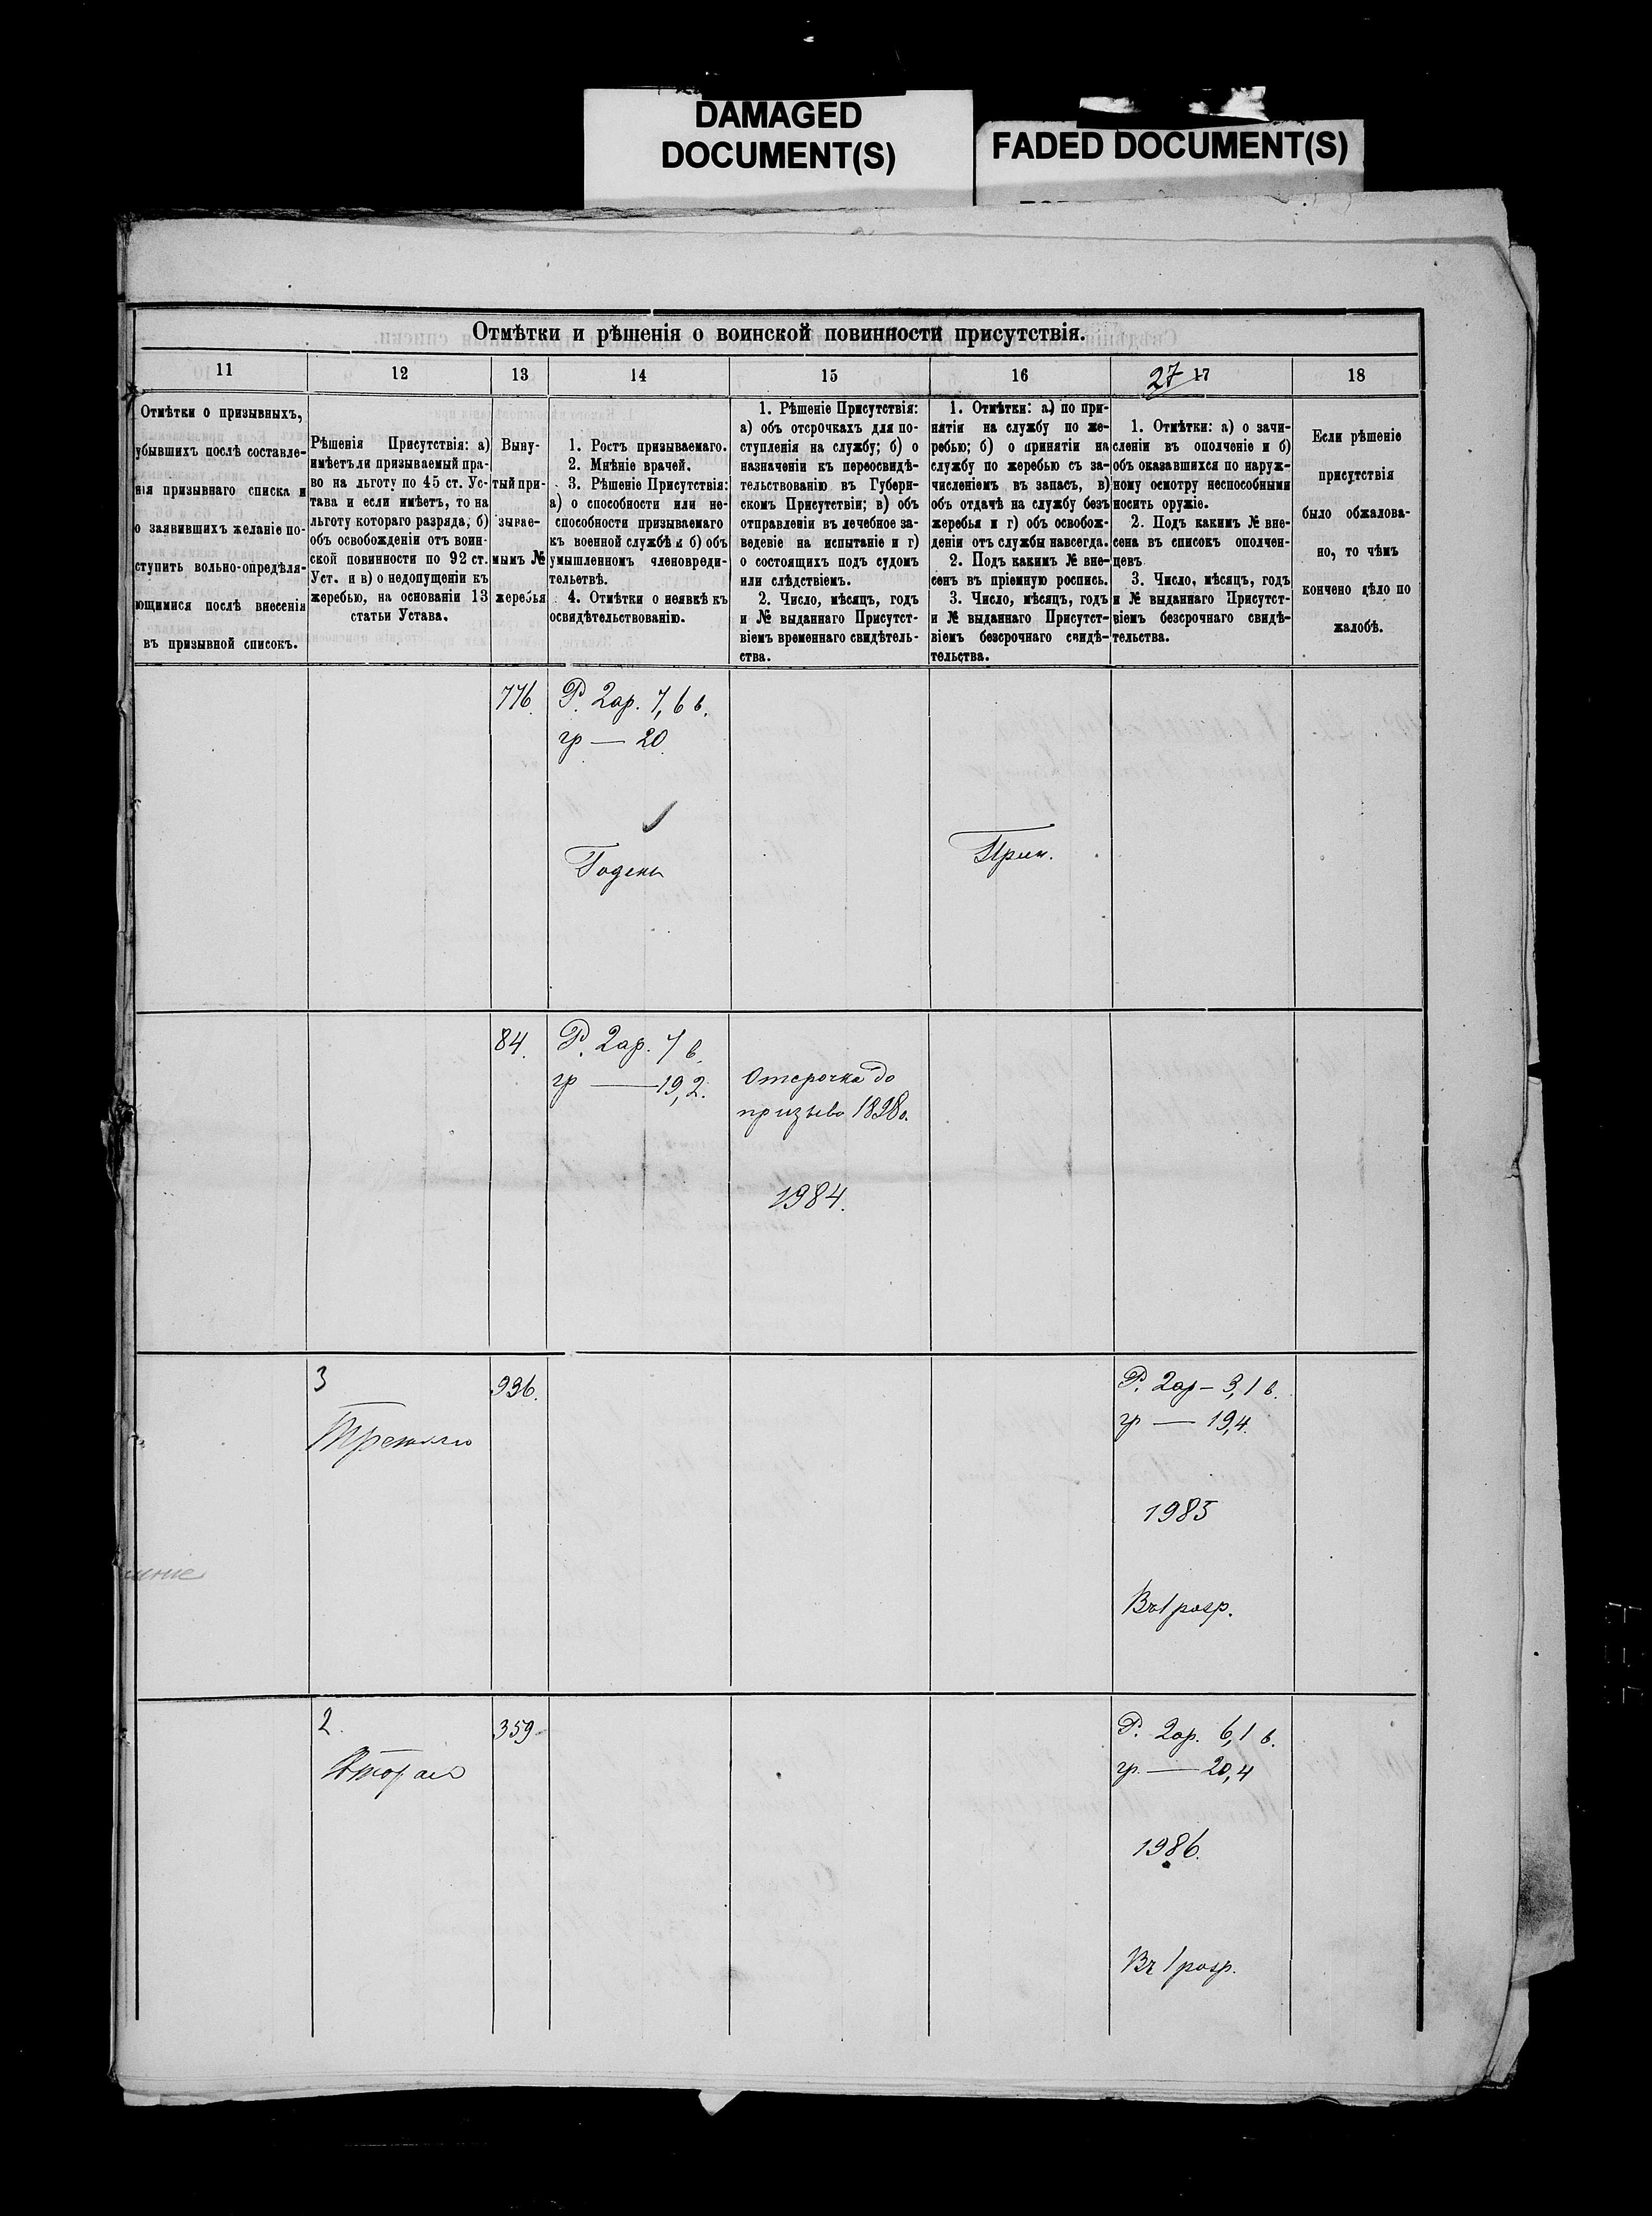 DAMAGED
DOCUMENT(S)
FADED DOCUMENT(S)
Отмѣтки и рѣшенія о воинской повинности присутствія.
11
12
13
14
15
16
27
17
18
Отмѣтки о призывныхъ,
убывшихъ послѣ составле-
нія призывнаго списка и
о заявившихъ желаніе по-
ступить вольно-опредѣля-
ющимися послѣ внесенія
въ призывной списокъ.
Рѣшенія Присутствія: а)
имѣетъ ли призываемый пра-
во на льготу по 45 ст. Ус-
тава и если имѣетъ, то на
льготу котораго разряда, б)
объ освобожденіи отъ воин-
ской повинности по 92 ст.
Уст. и в) о недопущеніи къ
жеребью, на основаніи 13
статьи Устава.
Выну-
тый при-
зывае-
мымъ №
жеребья
1. Ростъ призываемаго.
2. Мнѣніе врачей.
3. Рѣшеніе Присутствія:
а) о способности или не-
способности призываемаго
къ военной службѣ и б) объ
умышленномъ членовреди-
тельствѣ.
4. Отмѣтки о неявкѣ къ
освидѣтельствованію.
1. Рѣшеніе Присутствія:
а) объ отсрочкахъ для по-
ступленія на службу; б) о
назначеніи къ переосвидѣ-
тельствованію въ Губерн-
скомъ Присутствіи; в) объ
отправленіи въ лечебное за-
веденіе на испытаніе и г)
о состоящихъ подъ судомъ
или слѣдствіемъ.
2. Число, мѣсяцъ, годъ
и № выданнаго Присутст-
віемъ временнаго свидѣтель-
ства.
1. Отмѣтки: а) по при-
нятіи на службу по же-
ребью; б) о принятіи на
службу по жеребью съ за-
численіемъ въ запасъ, в)
объ отдачѣ на службу безъ
жеребья и г) объ освобож-
деніи отъ службы навсегда.
2. Подъ какимъ № вне-
сенъ въ пріемную роспись.
3. Число, мѣсяцъ, годъ
и № выданнаго Присутст-
віемъ безсрочнаго свидѣ-
тельства.
1. Отмѣтки: а) о зачи-
сленіи въ ополченіе и б)
объ оказавшихся по наруж-
ному осмотру неспособными
носить оружіе.
2. Подъ какимъ № вне-
сена въ списокъ ополчен-
цевъ
3. Число, мѣсяцъ, годъ
и № выданнаго Присутст-
віемъ безсрочнаго свидѣ-
тельства.
Если рѣшеніе
присутствія
было обжалова-
но, то чѣмъ
кончено дѣло по
жалобѣ.
776.
Р. 2ар. 7,6 в.
гр — 20.
Годенъ
Прин.
84.
Р. 2ар. 7 в.
гр — 19,2.
Отсрочка до
призыва 1898г.
1984.
3
Третьяго
996.
Р. 2ар – 3,1 в.
гр — 19,4.
1985
Въ 1 разр.
2.
Втораго
359
Р. 2ар. 6,1 в.
гр. — 20,4
1986.
Въ 1 разр.